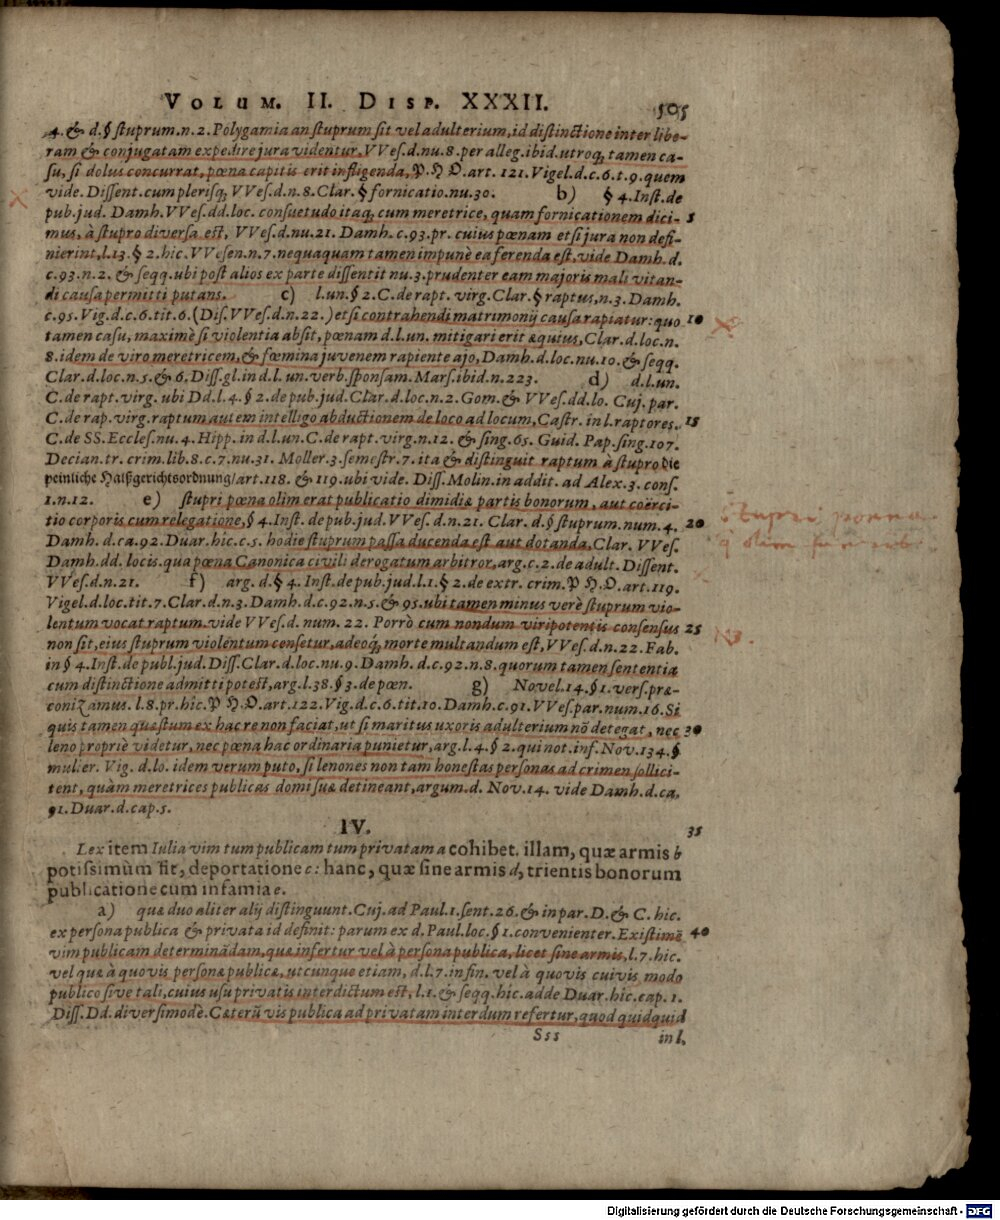 VOLUM. II. DISP. XXXII. 505
4. & d. § stuprum. n. 2. Polygamia an stuprum sit vel adulterium, id distinctione inter libe-
ram & conjugatam expedire jura videntur, VVes. d. nu. 8. per alleg. ibid. utroq, tamen ca-
su, si dolus concurrat, pœna capitis erit infligenda, P. H. O. art. 121. Vigel. d. c. 6. t. 9. quem
vide. Dissent. cum plerisq, VVes. d. n. 8. Clar. § fornicatio. nu. 30. b) § 4. Inst. de
pub. jud. Damh. VVes. dd. loc. consuetudo itaq, cum meretrice, quam fornicationem dici- 5
mus, à stupro diversa est, VVes. d. nu. 21. Damh. c. 93. pr. cuius pœnam etsi jura non defi-
nierint, l. 13. § 2. hic. VVesen. n. 7. nequaquam tamen impunè ea ferenda est, vide Damh. d.
c. 93. n. 2. & seqq. ubi post alios ex parte dissentit nu. 3. prudenter eam majoris mali vitan-
di causa permitti putans. c) l. un. § 2. C. de rapt. virg. Clar. § raptus, n. 3. Damh.
c. 95. Vig. d. c. 6. tit. 6. (Dis. VVes. d. n. 22.) etsi contrahendi matrimonij causa rapiatur: quo 10
tamen casu, maximè si violentia absit, pœnam d. l. un. mitigari erit æquius, Clar. d. loc. n.
8. idem de viro meretricem, & fœmina juvenem rapiente ajo, Damh. d. loc. nu. 10. & seqq.
Clar. d. loc. n. 5. & 6. Diss. gl. in d. l. un. verb. sponsam. Mars. ibid. n. 223. d) d. l. un.
C. de rapt. virg. ubi Dd. l. 4. § 2. de pub. jud. Clar. d. loc. n. 2. Gom. & VVes. dd. lo. Cuj. par.
C. de rap. virg. raptum autem intelligo abductionem de loco ad locum, Castr. in l. raptores. 15
C. de SS. Eccles. nu. 4. Hipp. in d. l. un. C. de rapt. virg. n. 12. & sing. 65. Guid. Pap. sing. 107.
Decian. tr. crim. lib. 8. c. 7. nu. 31. Moller. 3. semestr. 7. ita & distinguit raptum à stupro die
peinliche Halßgerichtsordnung/ art. 118. & 119. ubi vide. Diss. Molin. in addit. ad Alex. 3. cons.
1. n. 12. e) stupri pœna olim erat publicatio dimidiæ partis bonorum, aut coërci-
tio corporis cum relegatione, § 4. Inst. de pub. jud. VVes. d. n. 21. Clar. d. § stuprum. num. 4. 20
Damh. d. ca. 92. Duar. hic. c. 5. hodie stuprum passa ducenda est aut dotanda, Clar. VVes.
Damh. dd. locis. qua pœna Canonica civili derogatum arbitror, arg. c. 2. de adult. Dissent.
VVes. d. n. 21. f) arg. d. § 4. Inst. de pub. jud. l. 1. § 2. de extr. crim. P. H. O. art. 119.
Vigel. d. loc. tit. 7. Clar. d. n. 3. Damh. d. c. 92. n. 5. & 95. ubi tamen minus verè stuprum vio-
lentum vocat raptum. vide VVes. d. num. 22. Porrò cum nondum viripotentis consensus 25
non sit, eius stuprum violentum censetur, adeoq, morte multandum est, VVes. d. n. 22. Fab.
in § 4. Inst. de publ. jud. Diss. Clar. d. loc. nu. 9. Damh. d. c. 92. n. 8. quorum tamen sententia
cum distinctione admitti potest, arg. l. 38. § 3. de pœn. g) Novel. 14. § 1. vers. præ-
conizamus. l. 8. pr. hîc. P. H. O. art. 122. Vig. d. c. 6. tit. 10. Damh. c. 91. VVes. par. num. 16. Si
quis tamen quæstum ex hac re non faciat, ut si maritus uxoris adulterium nō detegat, nec 30
leno propriè videtur, nec pœna hac ordinaria punietur, arg. l. 4. § 2. qui not. inf. Nov. 134. §
mulier. Vig. d. lo. idem verum puto, si lenones non tam honestas personas ad crimen sollici-
tent, quàm meretrices publicas domi suæ detineant, argum. d. Nov. 14. vide Damh. d. ca.
91. Duar. d. cap. 5.
IV. 35
Lex item Iulia vim tum publicam tum privatam a cohibet. illam, quæ armis b
potissimùm fit, deportatione c: hanc, quæ sine armis d, trientis bonorum
publicatione cum infamia e.
a) quæ duo aliter alij distinguunt. Cuj. ad Paul. 1. sent. 26. & in par. D. & C. hic.
ex persona publica & privata id definit: parum ex d. Paul. loc. § 1. convenienter. Existimē 40
vim publicam determinādam, quæ infertur vel à persona publica, licet sine armis, l. 7. hic.
vel quæ à quovis personæ publicæ, utcunque etiam, d. l. 7. in fin. vel à quovis cuivis modo
publico sive tali, cuius usu privatis interdictum est, l. 1. & seqq. hic. adde Duar. hic. cap. 1.
Diss. Dd. diversimodè. Cæterū vis publica ad privatam interdum refertur, quod quidquid
Sss in l.
Stupri poena
NB.
Digitalisierung gefördert durch die Deutsche Forschungsgemeinschaft - DFG